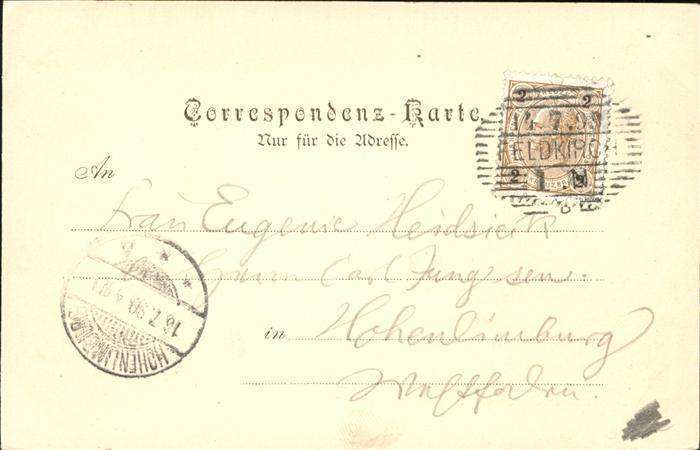 Correspondenz-Karte.
Nur für die Adresse.
2 2
14 7 9
FELDKIRCH
2 1 2
KREUZER
An
Frau Eugenie Heidsieck
Herrn Carl Jung sen.
in Hohenlimburg
Westfalen.
HOHENLIMBURG
16.7.99